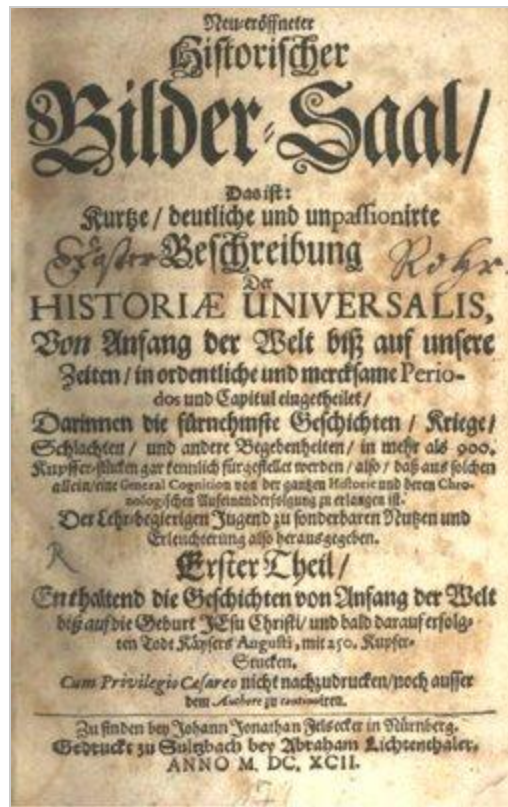 Neu-eröffneter
Historischer
Bilder-Saal/
Das ist:
Kurtze / deutliche und unpassionirte
Beschreibung
Rohr.
Der
HISTORIÆ UNIVERSALIS,
Von Anfang der Welt biß auf unsere
Zeiten / in ordentliche und mercksame Perio-
dos und Capitul eingetheilet /
Darinnen die fürnehmste Geschichten / Kriege /
Schlachten / und andere Begebenheiten / in mehr als 900.
Kupffer-stücken gar kennlich fürgestellet werden / also / daß aus solchen
allein / eine General Cognition von der gantzen Historie und deren Chro-
nologischen Aufeinanderfolgung zu erlangen ist.
Der Lehr-begierigen Jugend zu sonderbaren Nutzen und
Erleuchterung also herausgegeben.
R
Erster Theil /
Enthaltend die Geschichten von Anfang der Welt
biß auf die Geburt JEsu Christi / und bald darauf erfolg-
ten Todt Käysers Augusti, mit 250. Kupfer-
Stucken.
Cum Privilegio Cæsareo nicht nachzudrucken / noch ausser
dem Authore zu continuiren.
Zu finden bey Johann Jonathan Felsecker in Nürnberg.
Gedruckt zu Sultzbach bey Abraham Lichtenthaler,
ANNO M. DC. XCII.